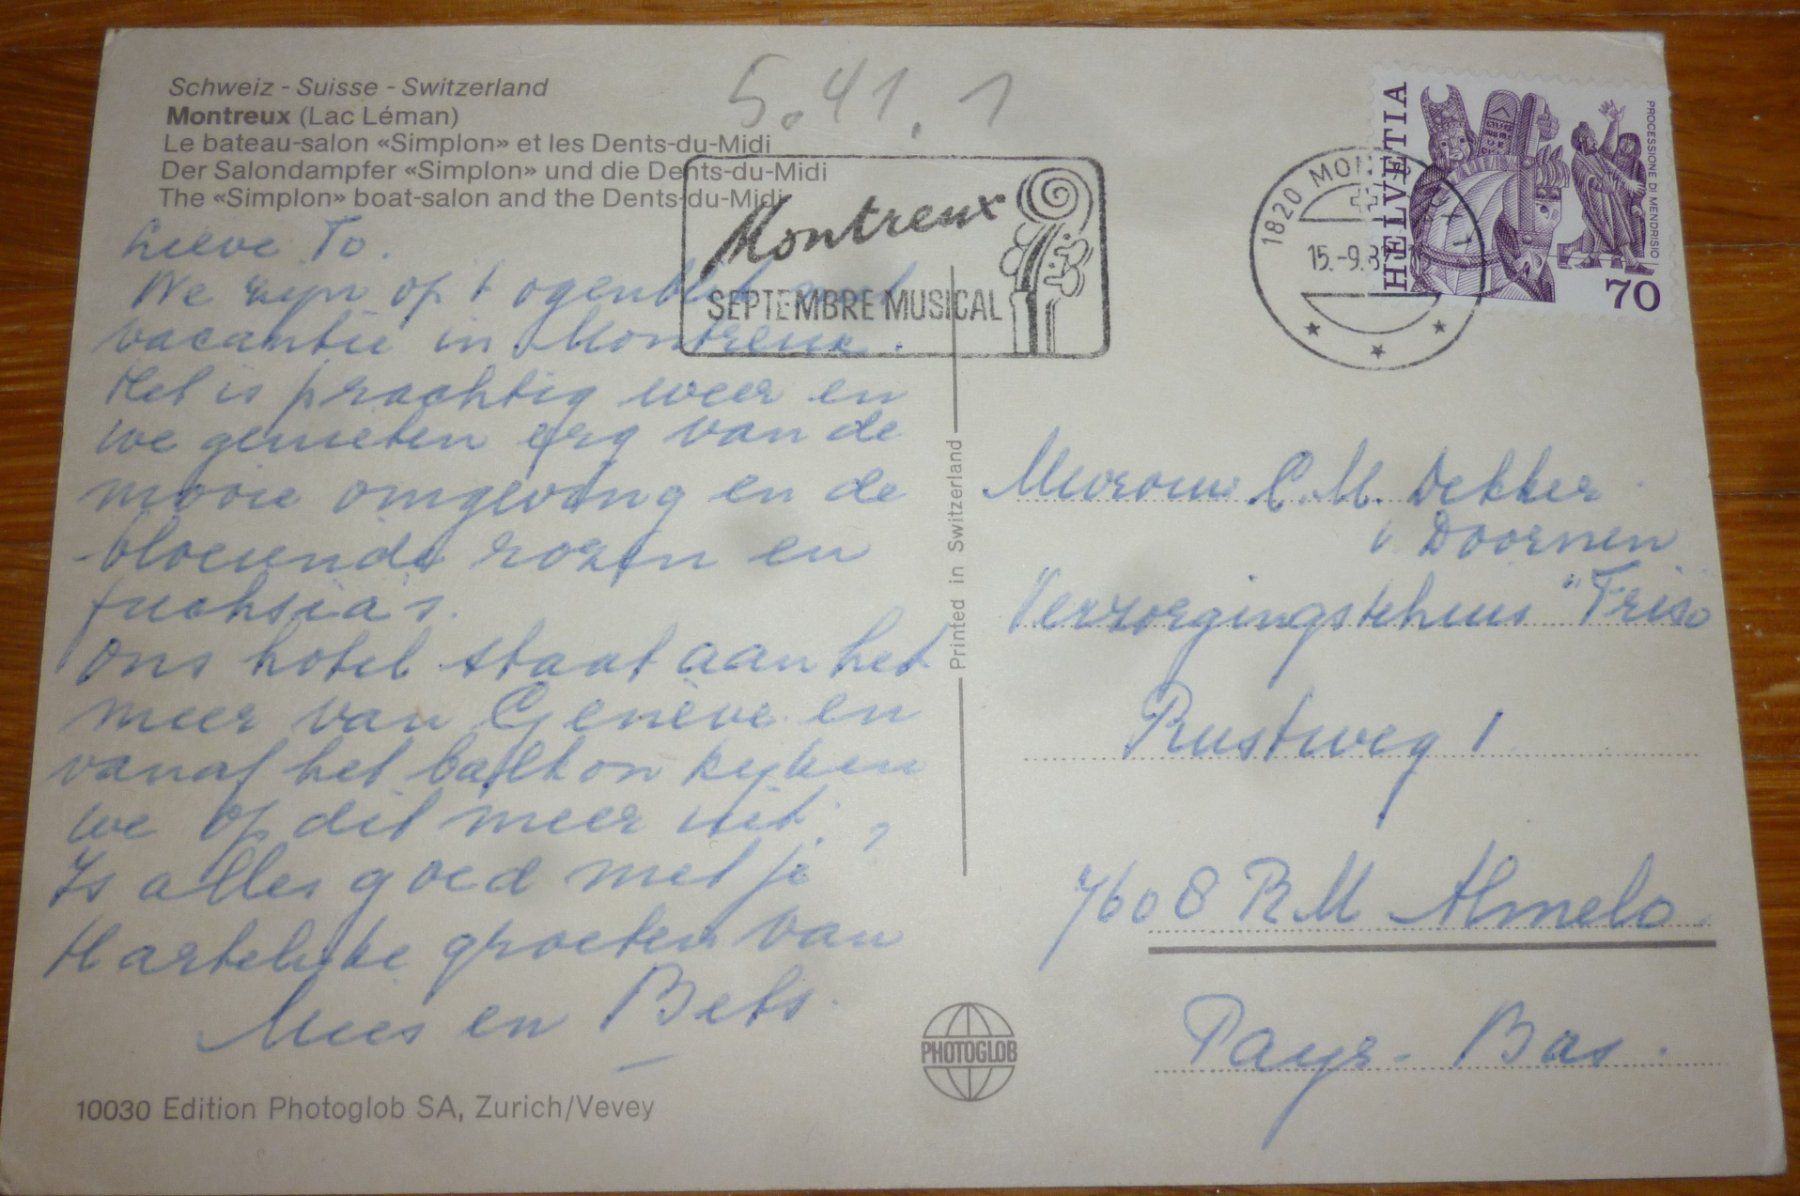 Schweiz - Suisse - Switzerland
Montreux (Lac Léman)
Le bateau-salon «Simplon» et les Dents-du-Midi
Der Salondampfer «Simplon» und die Dents-du-Midi
The «Simplon» boat-salon and the Dents-du-Midi
5.41.1
Montreux
SEPTEMBRE MUSICAL
1820 MONTREUX 1
15.-9.8
HELVETIA
PROCESSIONE DI MENDRISIO
70
Lieve To.
We zijn op 't ogenblik met
vacantie in Montreux.
Het is prachtig weer en
we genieten erg van de
mooie omgeving en de
bloeiende rozen en
fuchsia's.
Ons hotel staat aan het
meer van Genève en
vanaf het balkon kijken
we op dit meer uit.
Is alles goed met je?
Hartelijke groeten van
Mies en Bets.
10030 Edition Photoglob SA, Zurich/Vevey
Printed in Switzerland
PHOTOGLOB
Mevrouw C.M. Dekker
v Doornen
Verzorgingstehuis "Friso
Rustweg 1
7608 RM Almelo
Pays-Bas.